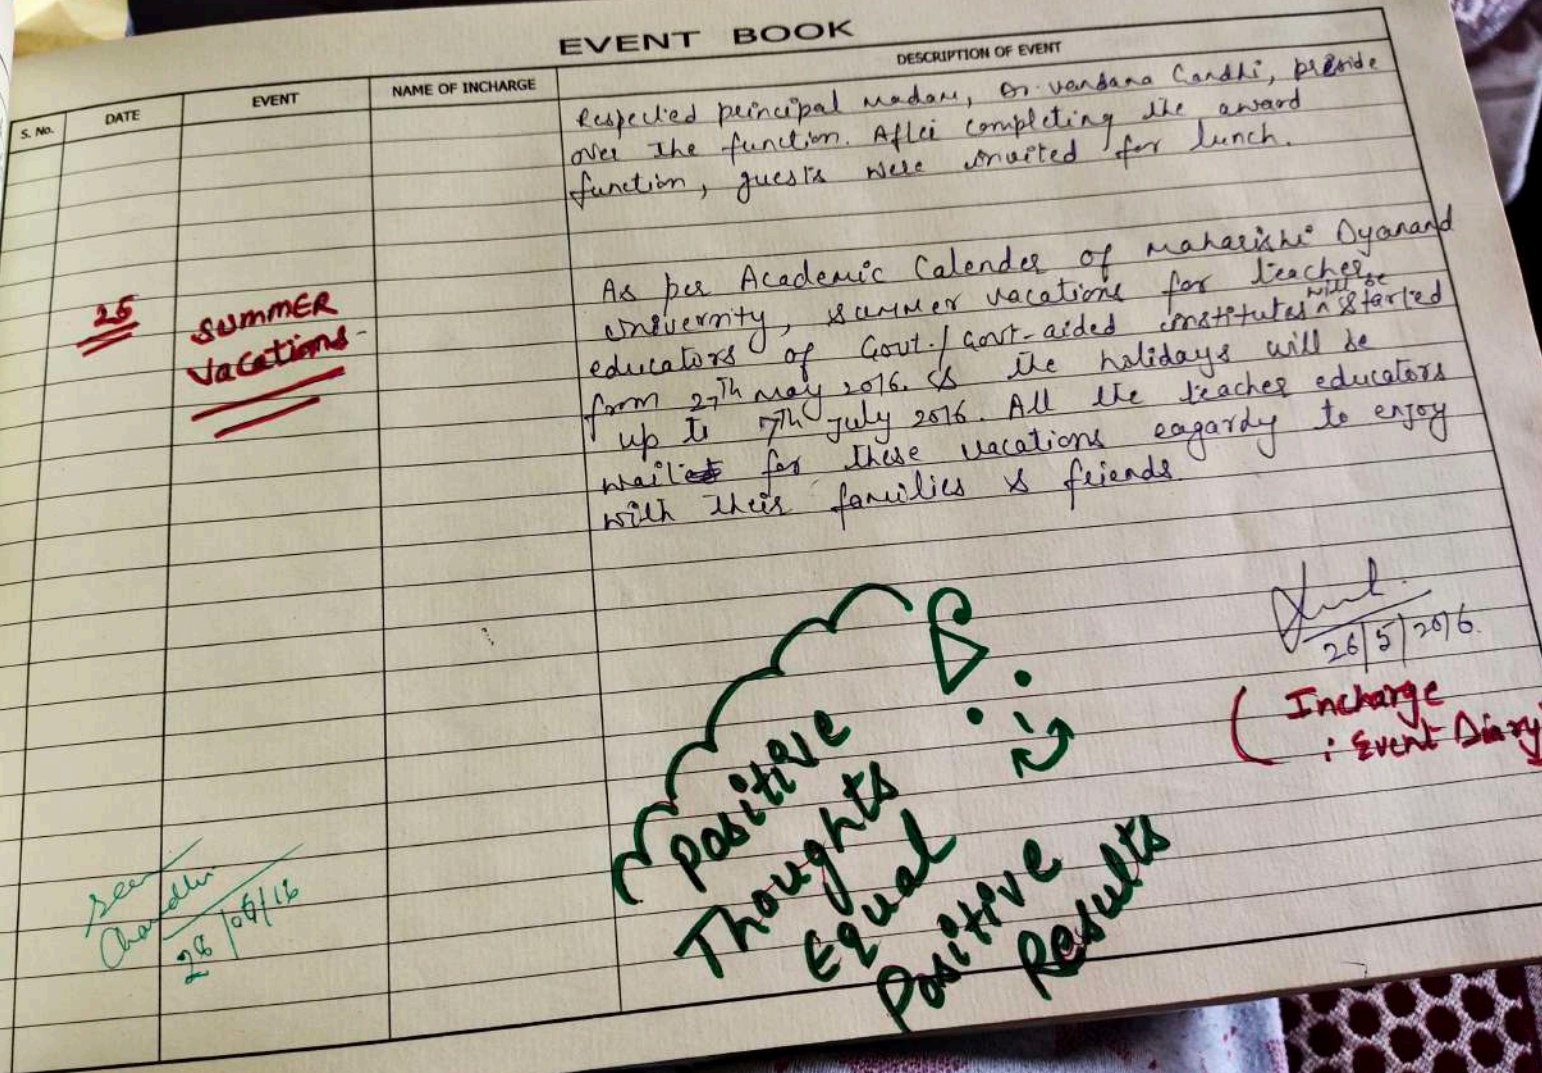 EVENT BOOK
S. No.
DATE
EVENT
NAME OF INCHARGE
DESCRIPTION OF EVENT
Respected principal Madam, Dr. Vandana Gandhi, preside
over the function. After completing the award
function, guests were invited for lunch.
25
SUMMER
Vacations
As per Academic Calender of Maharishi Dyanand
University, summer vacations for teacher
educators of Govt./Govt-aided institutes will be started
from 27th May 2016. & the holidays will be
up to 7th July 2016. All the teacher educators
wait for these vacations eagardy to enjoy
with their families & friends.
26/5/2016.
( Incharge
: Event Diary)
Positive
Thoughts
Equal
Positive
Results
Seen
28/05/16